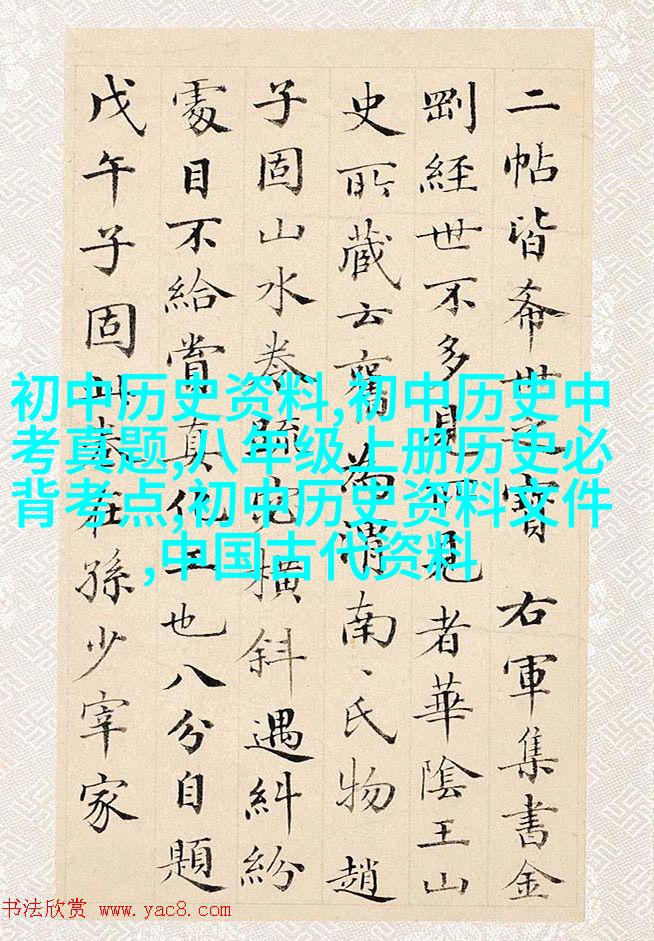 二帖皆希世之寶 右軍集書金
剛經世不多見見者華陰王山
史所藏云舊為渭南〻氏物趙
子固山水卷疏密橫斜遇糾紛
處目不給賞真化工也八分自題
戊午子固此卷在孫少宰家
初中历史资料,初中历史中
考真题,八年级上册历史必
背考点,初中历史资料文件
,中国古代资料
书法欣赏 www.yac8.com